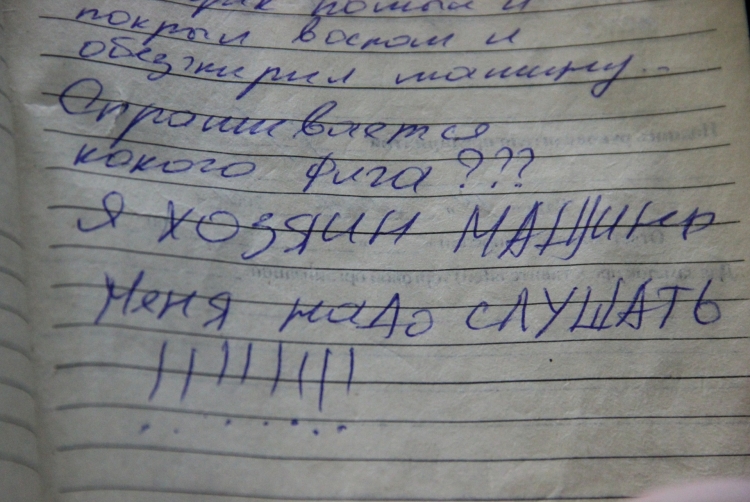 помыл и
покрыл воском и
обезжирил машину..
Спрашивается
какого фига???
Я ХОЗЯИН МАШИНЫ
Меня надо СЛУШАТЬ
!!!!!!!!!